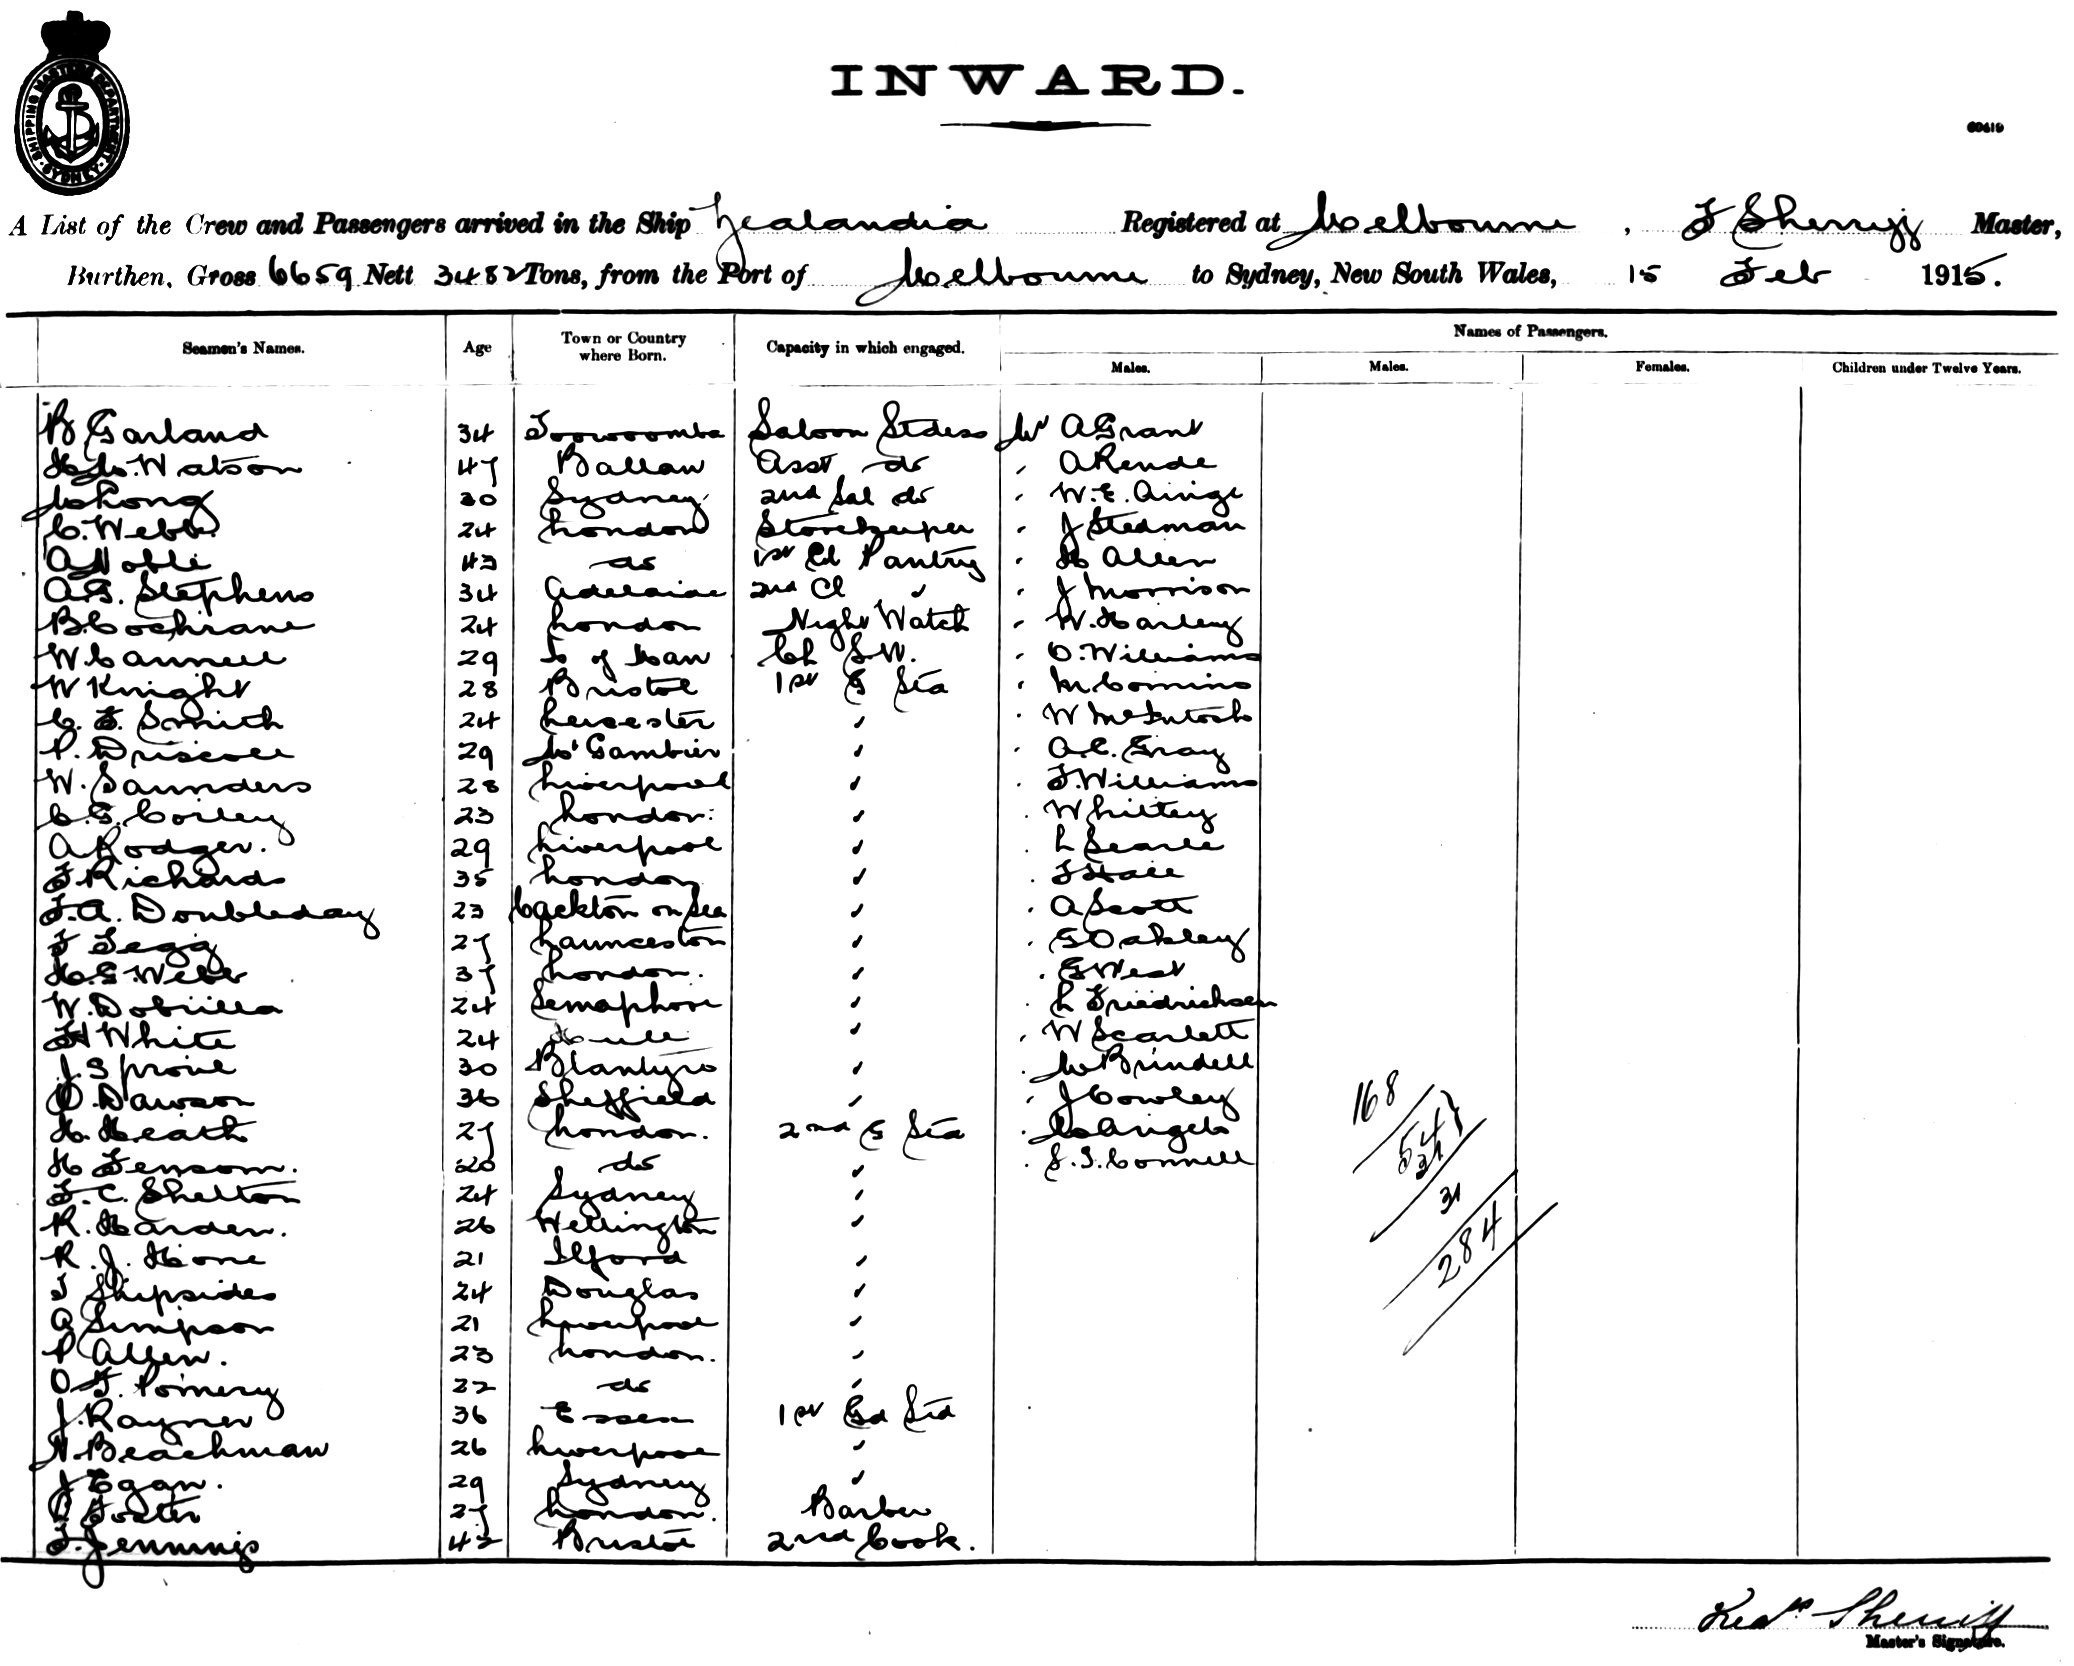 SHIPPING MASTERS DEPARTMENT SYDNEY
INWARD.
60419
A List of the Crew and Passengers arrived in the Ship Zealandia Registered at Melbourne, F Sherriff Master,
Burthen, Gross 6659 Nett 3482 Tons, from the Port of Melbourne to Sydney, New South Wales, 15 Feb 1915.
Seamen's Names. Age Town or Country where Born. Capacity in which engaged. Names of Passengers.
Males. Males. Females. Children under Twelve Years.
B Garland 34 Toowoomba Saloon Stdess Mr A Grant
H M. Watson 47 Ballan Asst do " A Rende
M Long 30 Sydney 2nd Sal do " W. E. Ainge
C. Webb 24 London Storekeeper " J Stedman
A Noble 43 do 1st Cl Pantry " H Allen
A.G. Stephens 34 Adelaide 2nd Cl " " J Morrison
B. Cochrane 24 London Night Watch " W. Harley
W. Cannell 29 I of Man Ch S.W. " O. Williams
W Knight 28 Bristol 1st G Sta " M. Comino
C. F. Smith 24 Leicester " " W McIntosh
P. Driscoll 29 Mt Gambier " " A.C. Gray
W. Saunders 28 Liverpool " " F. Williams
C. G. Corley 23 London " " Whittey
A Rodger. 29 Liverpool " " L Searle
F Richards 35 London " " F Hall
F.A. Doubleday 23 Clackton on Sea " " A Scott
F Tegg 27 Launceston " " G Oakley
H.G. Webb 37 London. " " G West
W. Dobrilla 24 Semaphore " " L Friedrichsen
H White 24 Hull " " W Scarlett
J. Sproul 30 Blantyre " " M Brindell
D. Dawson 36 Sheffield " " J Cowley
H. Heath 27 London. 2nd G Sta " M Angels
H Fensom. 20 do " " S.J. Connell
F. C. Shelton 24 Sydney "
R. Harden. 26 Wellington "
R. J. Hone 21 Ilford "
T Shipsides 24 Douglas "
A Simpson 21 Liverpool "
P Allen. 23 London. "
O. F. Pomery 22 do "
J. Rayner 36 Essex 1st Gd Std
N. Beachman 26 Liverpool "
J Egan. 29 Sydney "
Foster 27 London. Barber
F. Jennings 42 Bristol 2nd Cook.
168
54
31
284
Fredk Sherriff
Master's Signature.